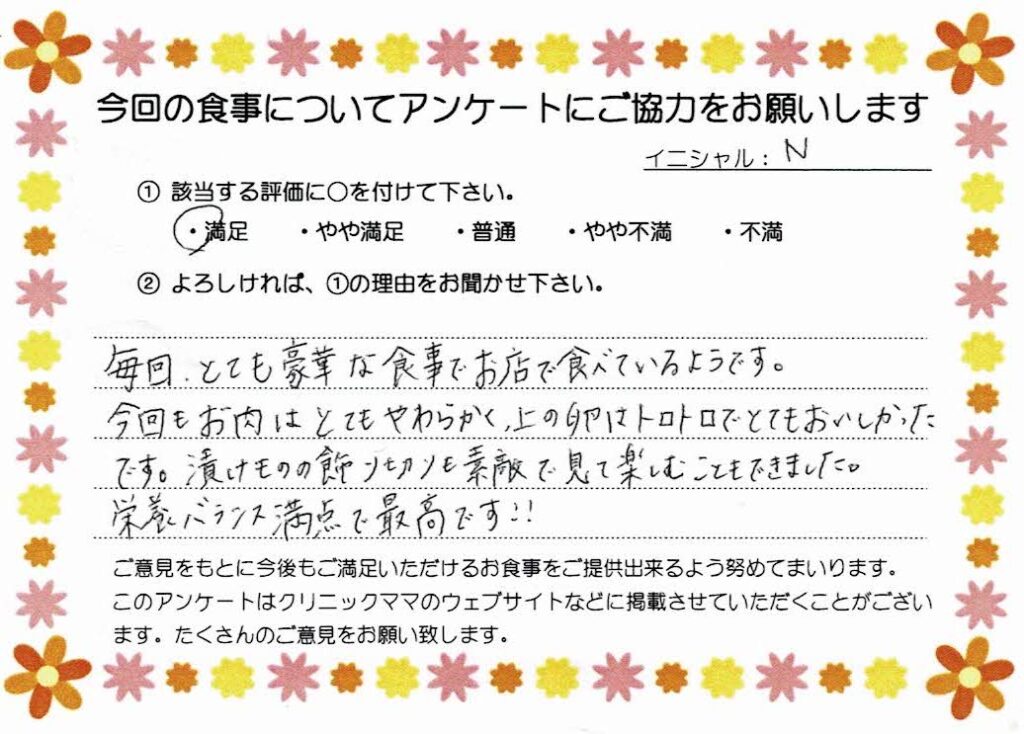 今回の食事についてアンケートにご協力をお願いします
イニシャル：N
① 該当する評価に○を付けて下さい。
・満足 ・やや満足 ・普通 ・やや不満 ・不満
② よろしければ、①の理由をお聞かせ下さい。
毎回、とても豪華な食事でお店で食べているようです。
今回もお肉はとてもやわらかく、上の卵はトロトロでとてもおいしかった
です。漬けものの飾り切りも素敵で見て楽しむこともできました。
栄養バランス満点で最高です!!
ご意見をもとに今後もご満足いただけるお食事をご提供出来るよう努めてまいります。
このアンケートはクリニックママのウェブサイトなどに掲載させていただくことがござい
ます。たくさんのご意見をお願い致します。